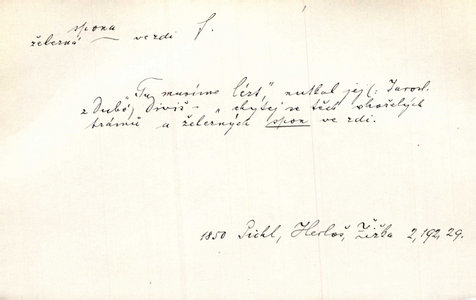 spona
železná — ve zdi f.
"Tu musíme lézt," nutkal jej (: Jarosl.
z Dubé) Diviš — "chytej se těch ohořelých
trámů a železných spon ve zdi.
1850 Pichl, Herloš, Žižka 2,192,29.